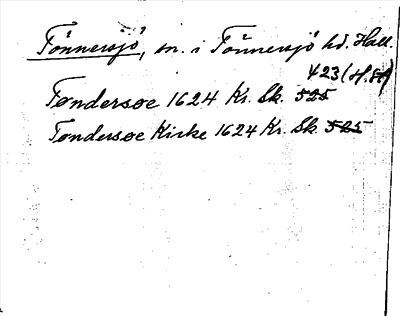 Tönnersjö, sn. i Tönnersjö hd. Hall.
423 (H.St)
Tøndersøe 1624 Kr. Sk. 525
Tøndersøe Kirke 1624 Kr. Sk. 525